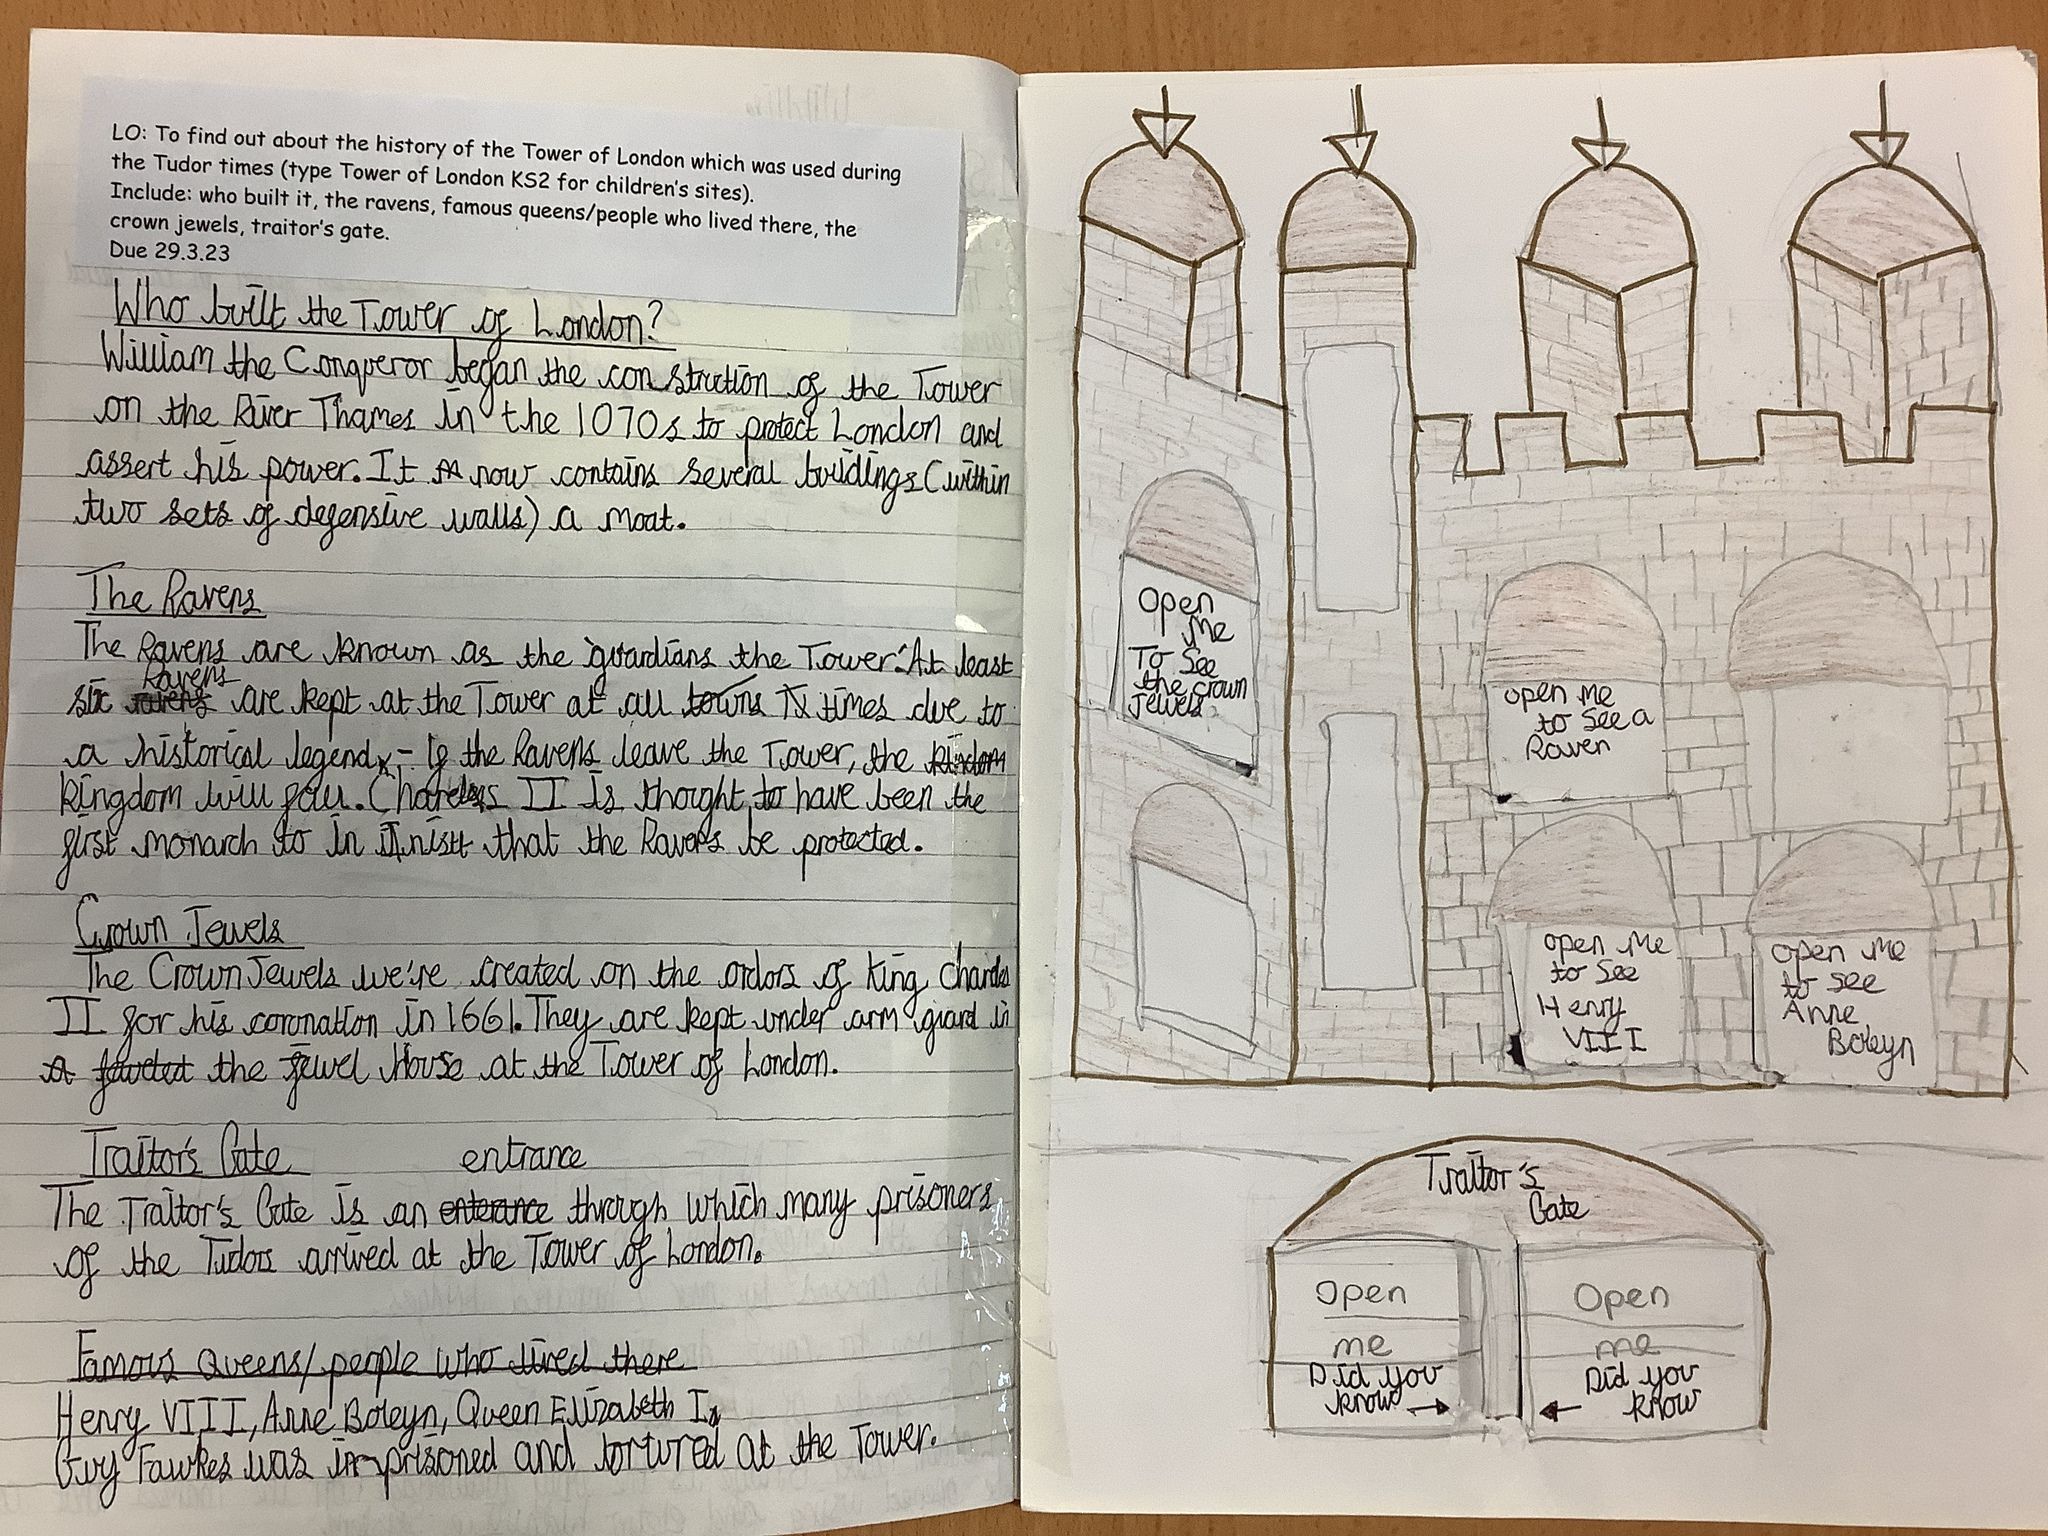 LO: To find out about the history of the Tower of London which was used during
the Tudor times (type Tower of London KS2 for children's sites).
Include: who built it, the ravens, famous queens/people who lived there, the
crown jewels, traitor's gate.
Due 29.3.23
Who built the Tower of London?
William the Conqueror began the construction of the Tower
on the River Thames in the 1070s to protect London and
assert his power. It now contains several buildings (within
two sets of defensive walls) a moat.
The Ravens
The Ravens are known as the 'guardians the Tower'. At least
six Ravens are kept at the Tower at all towns times due to
a historical legend - If the Ravens leave the Tower, the kindom
kingdom will fall. Charles II is thought to have been the
first monarch to in that the Ravens be protected.
Crown Jewels
The Crown Jewels we're created on the ordors of King Charles
II for his coronation in 1661. They are kept under arm guard in
the jewel House at the Tower of London.
Traitor's Gate
entrance
The Traitor's Gate is an enterance through which many prisoners
of the Tudors arrived at the Tower of London.
Famous Queens/people who lived there
Henry VIII, Anne Boleyn, Queen Elizabeth I,
Guy Fawkes was imprisoned and tortured at the Tower.
Open
Me
To See
the crown
Jewels
open Me
to See a
Raven
open Me
to See
Henry
VIII
open Me
to see
Anne
Boleyn
Traitor's
Gate
Open
me
Did you
know
Open
me
Did you
know